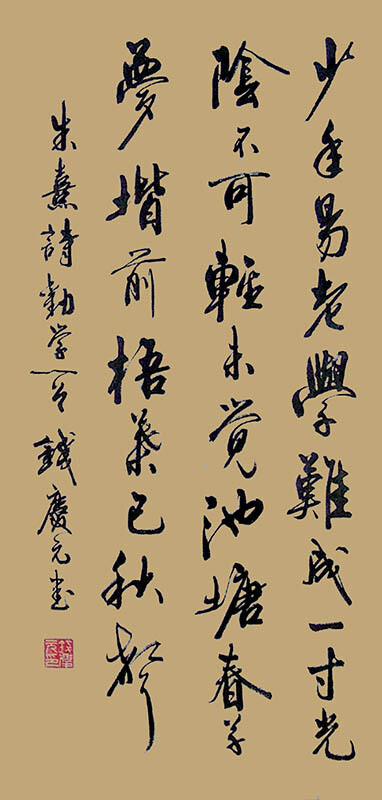 少年易老學難成一寸光
陰不可輕未觉池塘春草
夢堦前梧葉已秋聲
朱熹詩勸学一首錢慶元书